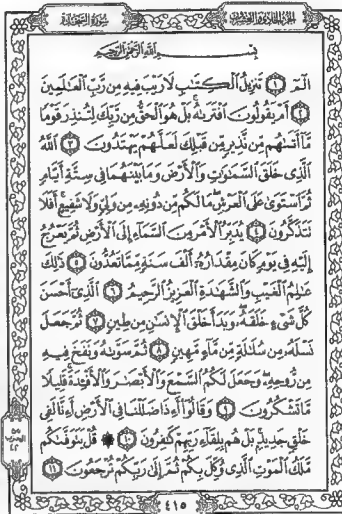 الجزء الحادي والعشرون سورة السجدة
بسم الله الرحمن الرحيم
الٓمٓ ١ تَنزِيلُ ٱلْكِتَٰبِ لَا رَيْبَ فِيهِ مِن رَّبِّ ٱلْعَٰلَمِينَ
٢ أَمْ يَقُولُونَ ٱفْتَرَىٰهُ بَلْ هُوَ ٱلْحَقُّ مِن رَّبِّكَ لِتُنذِرَ قَوْمًا
مَّآ أَتَىٰهُم مِّن نَّذِيرٍ مِّن قَبْلِكَ لَعَلَّهُمْ يَهْتَدُونَ ٣ ٱللَّهُ
ٱلَّذِى خَلَقَ ٱلسَّمَٰوَٰتِ وَٱلْأَرْضَ وَمَا بَيْنَهُمَا فِى سِتَّةِ أَيَّامٍ
ثُمَّ ٱسْتَوَىٰ عَلَى ٱلْعَرْشِ مَا لَكُم مِّن دُونِهِۦ مِن وَلِىٍّ وَلَا شَفِيعٍ أَفَلَا
تَتَذَكَّرُونَ ٤ يُدَبِّرُ ٱلْأَمْرَ مِنَ ٱلسَّمَآءِ إِلَى ٱلْأَرْضِ ثُمَّ يَعْرُجُ
إِلَيْهِ فِى يَوْمٍ كَانَ مِقْدَارُهُۥٓ أَلْفَ سَنَةٍ مِّمَّا تَعُدُّونَ ٥ ذَٰلِكَ
عَٰلِمُ ٱلْغَيْبِ وَٱلشَّهَٰدَةِ ٱلْعَزِيزُ ٱلرَّحِيمُ ٦ ٱلَّذِىٓ أَحْسَنَ
كُلَّ شَىْءٍ خَلَقَهُۥ وَبَدَأَ خَلْقَ ٱلْإِنسَٰنِ مِن طِينٍ ٧ ثُمَّ جَعَلَ
نَسْلَهُۥ مِن سُلَٰلَةٍ مِّن مَّآءٍ مَّهِينٍ ٨ ثُمَّ سَوَّىٰهُ وَنَفَخَ فِيهِ
مِن رُّوحِهِۦ وَجَعَلَ لَكُمُ ٱلسَّمْعَ وَٱلْأَبْصَٰرَ وَٱلْأَفْـِٔدَةَ قَلِيلًا
مَّا تَشْكُرُونَ ٩ وَقَالُوٓا۟ أَءِذَا ضَلَلْنَا فِى ٱلْأَرْضِ أَءِنَّا لَفِى
خَلْقٍ جَدِيدٍۭ بَلْ هُم بِلِقَآءِ رَبِّهِمْ كَٰفِرُونَ ١٠ ۞ قُلْ يَتَوَفَّىٰكُم
مَّلَكُ ٱلْمَوْتِ ٱلَّذِى وُكِّلَ بِكُمْ ثُمَّ إِلَىٰ رَبِّكُمْ تُرْجَعُونَ ١١
الحزب
٤٢
٤١٥